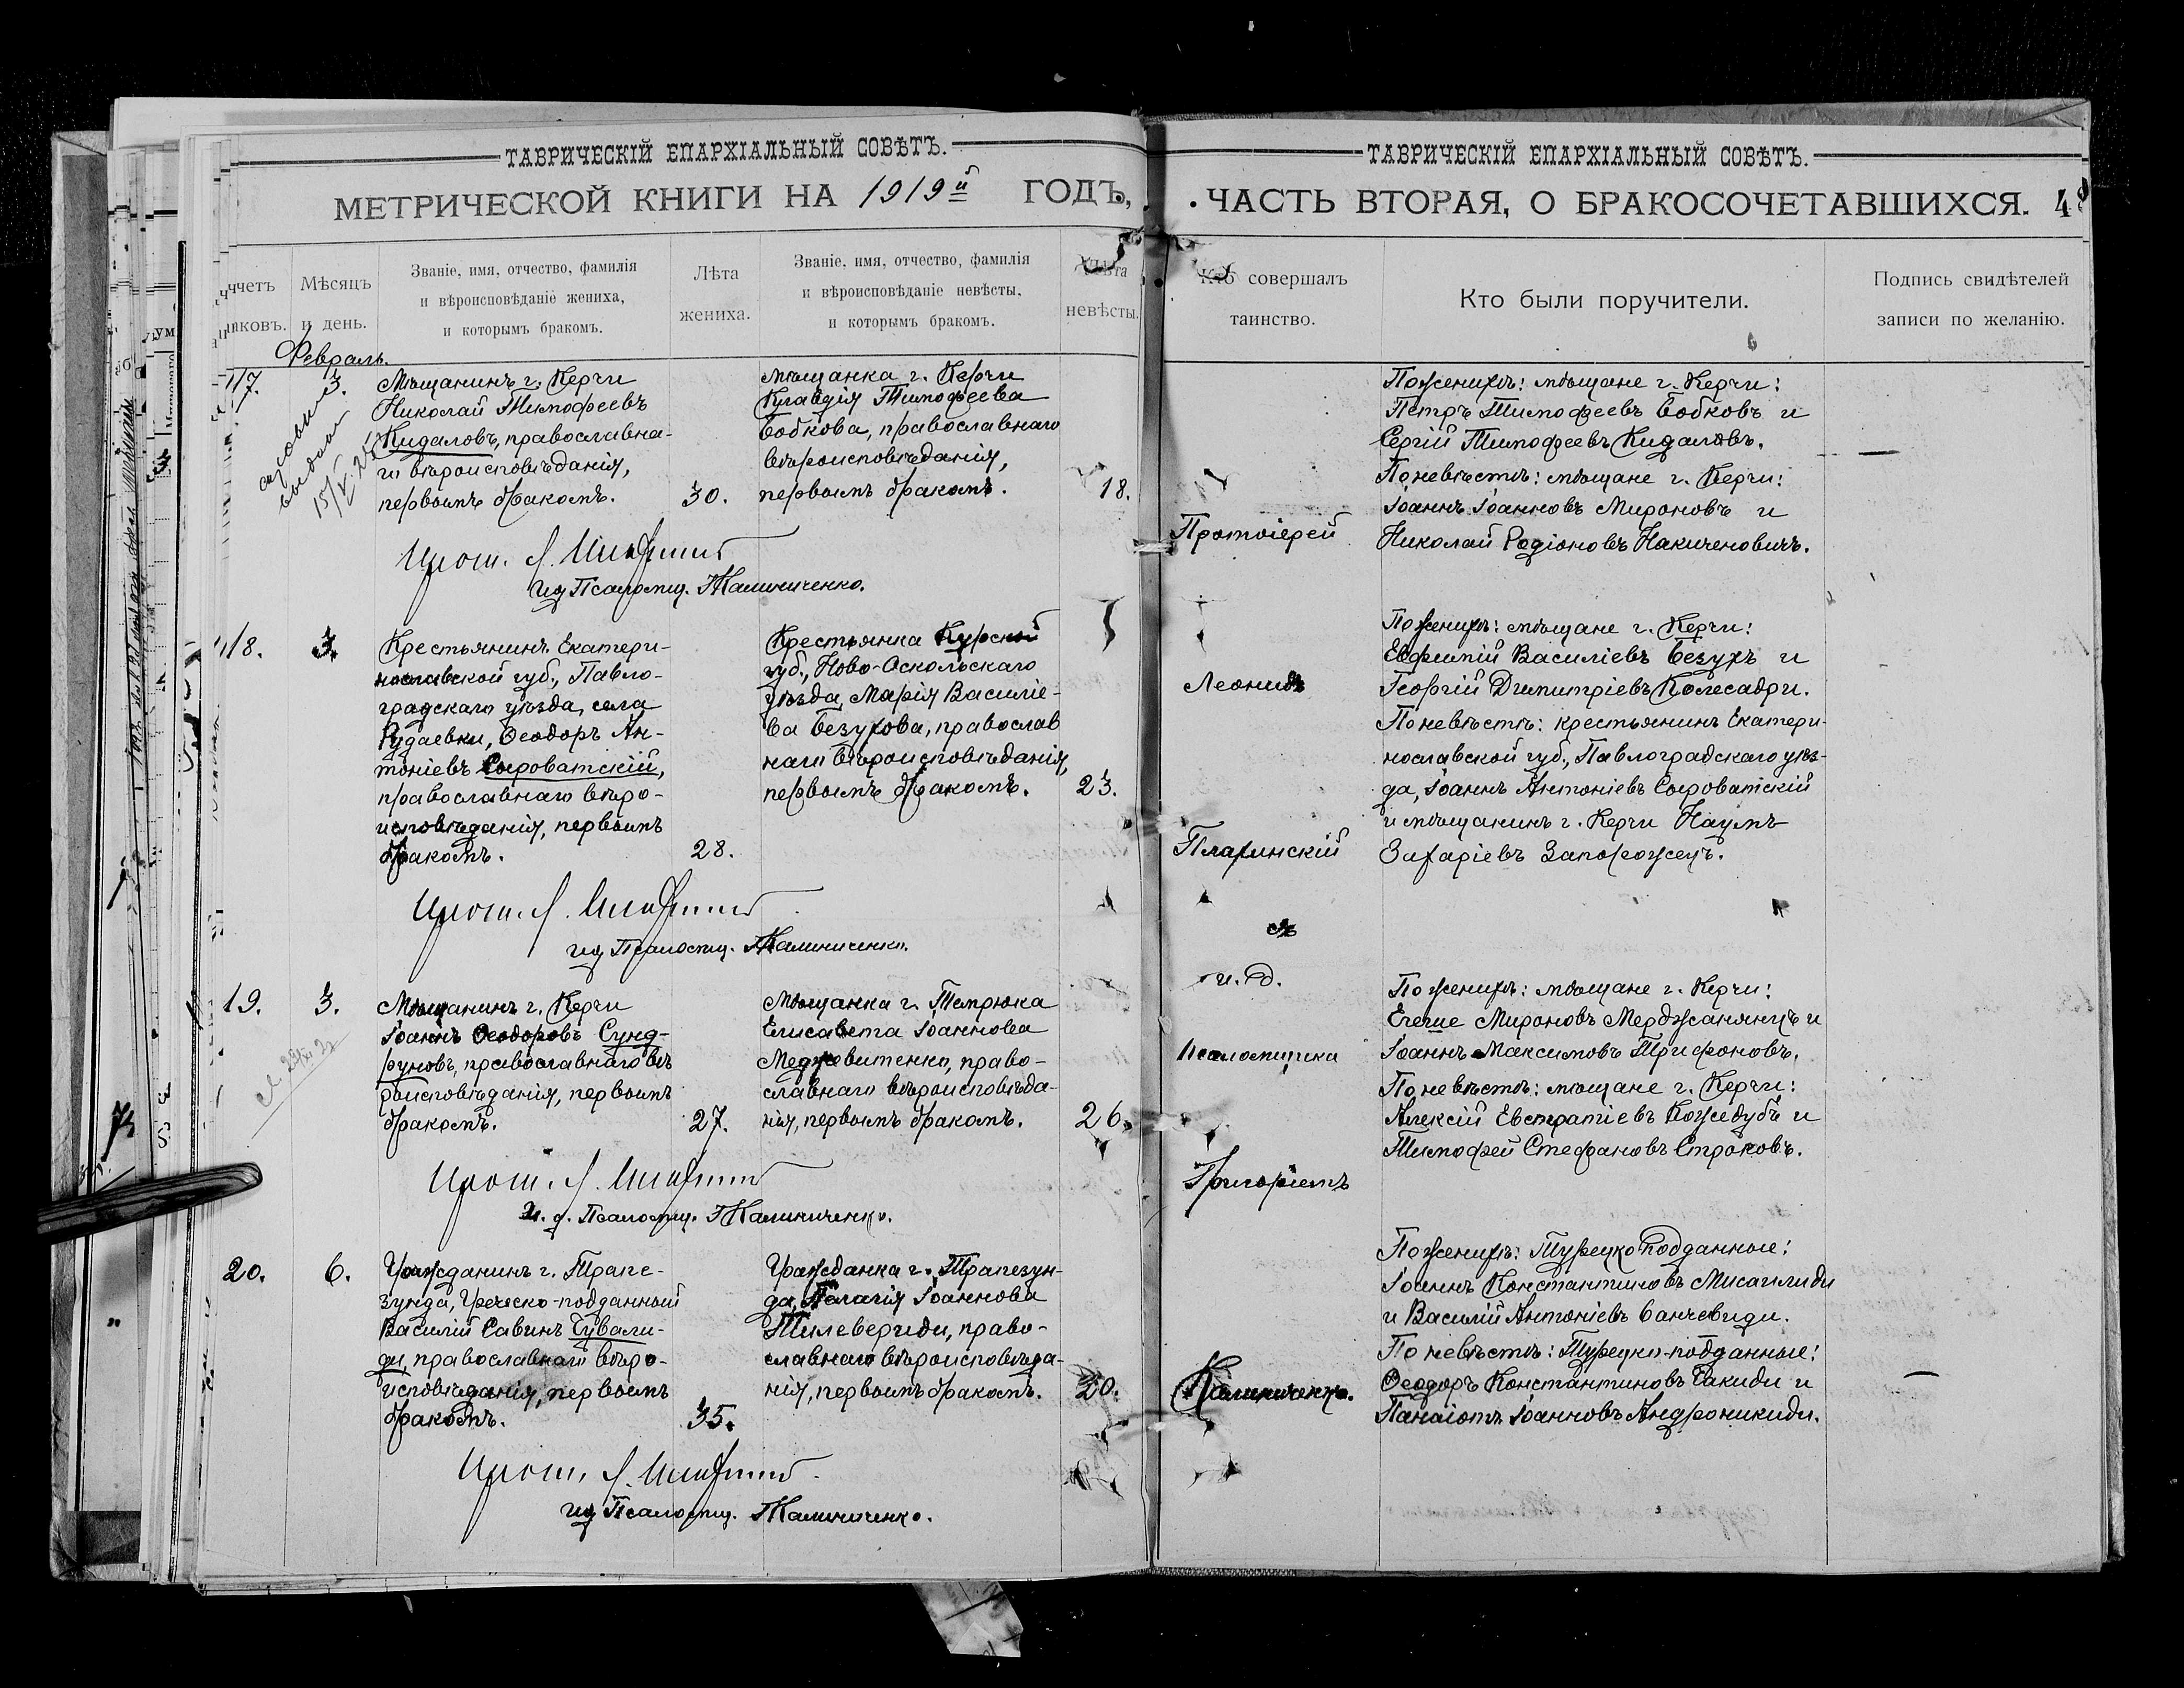 ТАВРИЧЕСКІЙ ЕПАРХІАЛЬНЫЙ СОВѢТЪ.
МЕТРИЧЕСКОЙ КНИГИ НА 1919й ГОДЪ,
Мѣсяцъ и день.
Званіе, имя, отчество, фамилія
и вѣроисповѣданіе жениха,
и которымъ бракомъ.
Лѣта
жениха.
Званіе, имя, отчество, фамилія
и вѣроисповѣданіе невѣсты,
и которымъ бракомъ.
Лѣта
невѣсты.
Февраль.
17.
3.
Мѣщанинъ г. Керчи
Николай Тимофеевъ
Кидаловъ, православна-
го вѣроисповѣданія,
первымъ бракомъ.
30.
Мѣщанка г. Керчи
Клавдія Тимофеева
Бобкова, православнаго
вѣроисповѣданія,
первымъ бракомъ.
18.
Прот. Л.
Псаломщ. Калиниченко.
18.
3.
Крестьянинъ Екатери-
нославской губ., Павло-
градскаго уѣзда, села
Рудаевки, Ѳеодоръ Ан-
тоніевъ Сыроватскій,
православнаго вѣро-
исповѣданія, первымъ
бракомъ.
28.
Крестьянка Курской
губ., Ново-Оскольскаго
уѣзда, Марія Василіе-
ва Безухова, православ
наго вѣроисповѣданія,
первымъ бракомъ.
23.
Прот. Л.
Псаломщ. Калиниченко.
19.
3.
Мѣщанинъ г. Керчи
Іоаннъ Ѳеодоровъ Сунд-
руновъ, православнаго вѣ
роисповѣданія, первымъ
бракомъ.
27.
Мѣщанка г. Темрюка
Елисавета Іоаннова
право-
славнаго вѣроисповѣда-
нія, первымъ бракомъ.
26.
Прот. Л.
И. д. Псаломщ. Калиниченко.
20.
6.
Гражданинъ г. Трапе-
зунда, Греческо-подданный
Василій Савинъ Чували-
ди, православнаго вѣро-
исповѣданія, первымъ
бракомъ.
35.
Гражданка г. Трапезун-
да, Пелагія Іоаннова
Тилевериди, право-
славнаго вѣроисповѣда-
нія, первымъ бракомъ.
20.
Прот. Л.
Псаломщ. Калиниченко.
ТАВРИЧЕСКІЙ ЕПАРХІАЛЬНЫЙ СОВѢТЪ.
ЧАСТЬ ВТОРАЯ, О БРАКОСОЧЕТАВШИХСЯ. 48
Кто совершалъ
таинство.
Кто были поручители.
Подпись свидѣтелей
записи по желанію.
Протоіерей
Леонидъ
съ
и. д.
Псаломщика
Григоріемъ
Калиниченко.
По женихѣ: мѣщане г. Керчи:
Петръ Тимофеевъ Бобковъ и
Сергій Тимофеевъ Кидаловъ.
По невѣстѣ: мѣщане г. Керчи:
Іоаннъ Іоанновъ Мироновъ и
Николай Родіоновъ Накиченовичъ.
По женихѣ: мѣщане г. Керчи:
Евфимій Василіевъ Безухъ и
Георгій Димитріевъ Колесадри.
По невѣстѣ: крестьянинъ Екатери-
нославской губ., Павлоградскаго уѣз-
да, Іоаннъ Антоніевъ Сыроватскій
и мѣщанинъ г. Керчи Наумъ
Запорожецъ.
По женихѣ: мѣщане г. Керчи:
Мироновъ Мерджанянцъ и
Іоаннъ Максимовъ Трифоновъ.
По невѣстѣ: мѣщане г. Керчи:
Алексій Евстратіевъ Кожедубъ и
Тимофей Стефановъ Строковъ.
По женихѣ: Турецко подданные:
Іоаннъ Константиновъ Мисаилиди
и Василій Антоніевъ
По невѣстѣ: Турецко-подданные:
Ѳеодоръ Константиновъ и
Панаіотъ Іоанновъ Андроникиди.